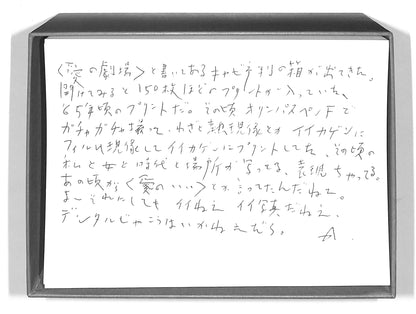 〈愛の劇場〉と書いてあるキャビネ判の箱が出てきた。
開けてみると150枚ほどのプリントが入っていた、
65年頃のプリントだ。その頃オリンパスペンFで
ガチャガチャ撮って、わざと熱現像とかイイカゲンに
フィルム現像してイイカゲンにプリントしてた、その頃の
私と女と時代と場所が写ってる、表現しちゃってる。
あの頃から〈愛の
とか言ってたんだねェ。
よーそれにしてもイイねェ イイ写真だねェ、
デジタルじゃこうはいかねェだろ。 A